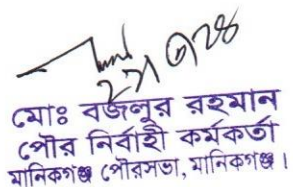 মোঃ বজলুর রহমান
পৌর নির্বাহী কর্মকর্তা
মানিকগঞ্জ পৌরসভা, মানিকগঞ্জ।